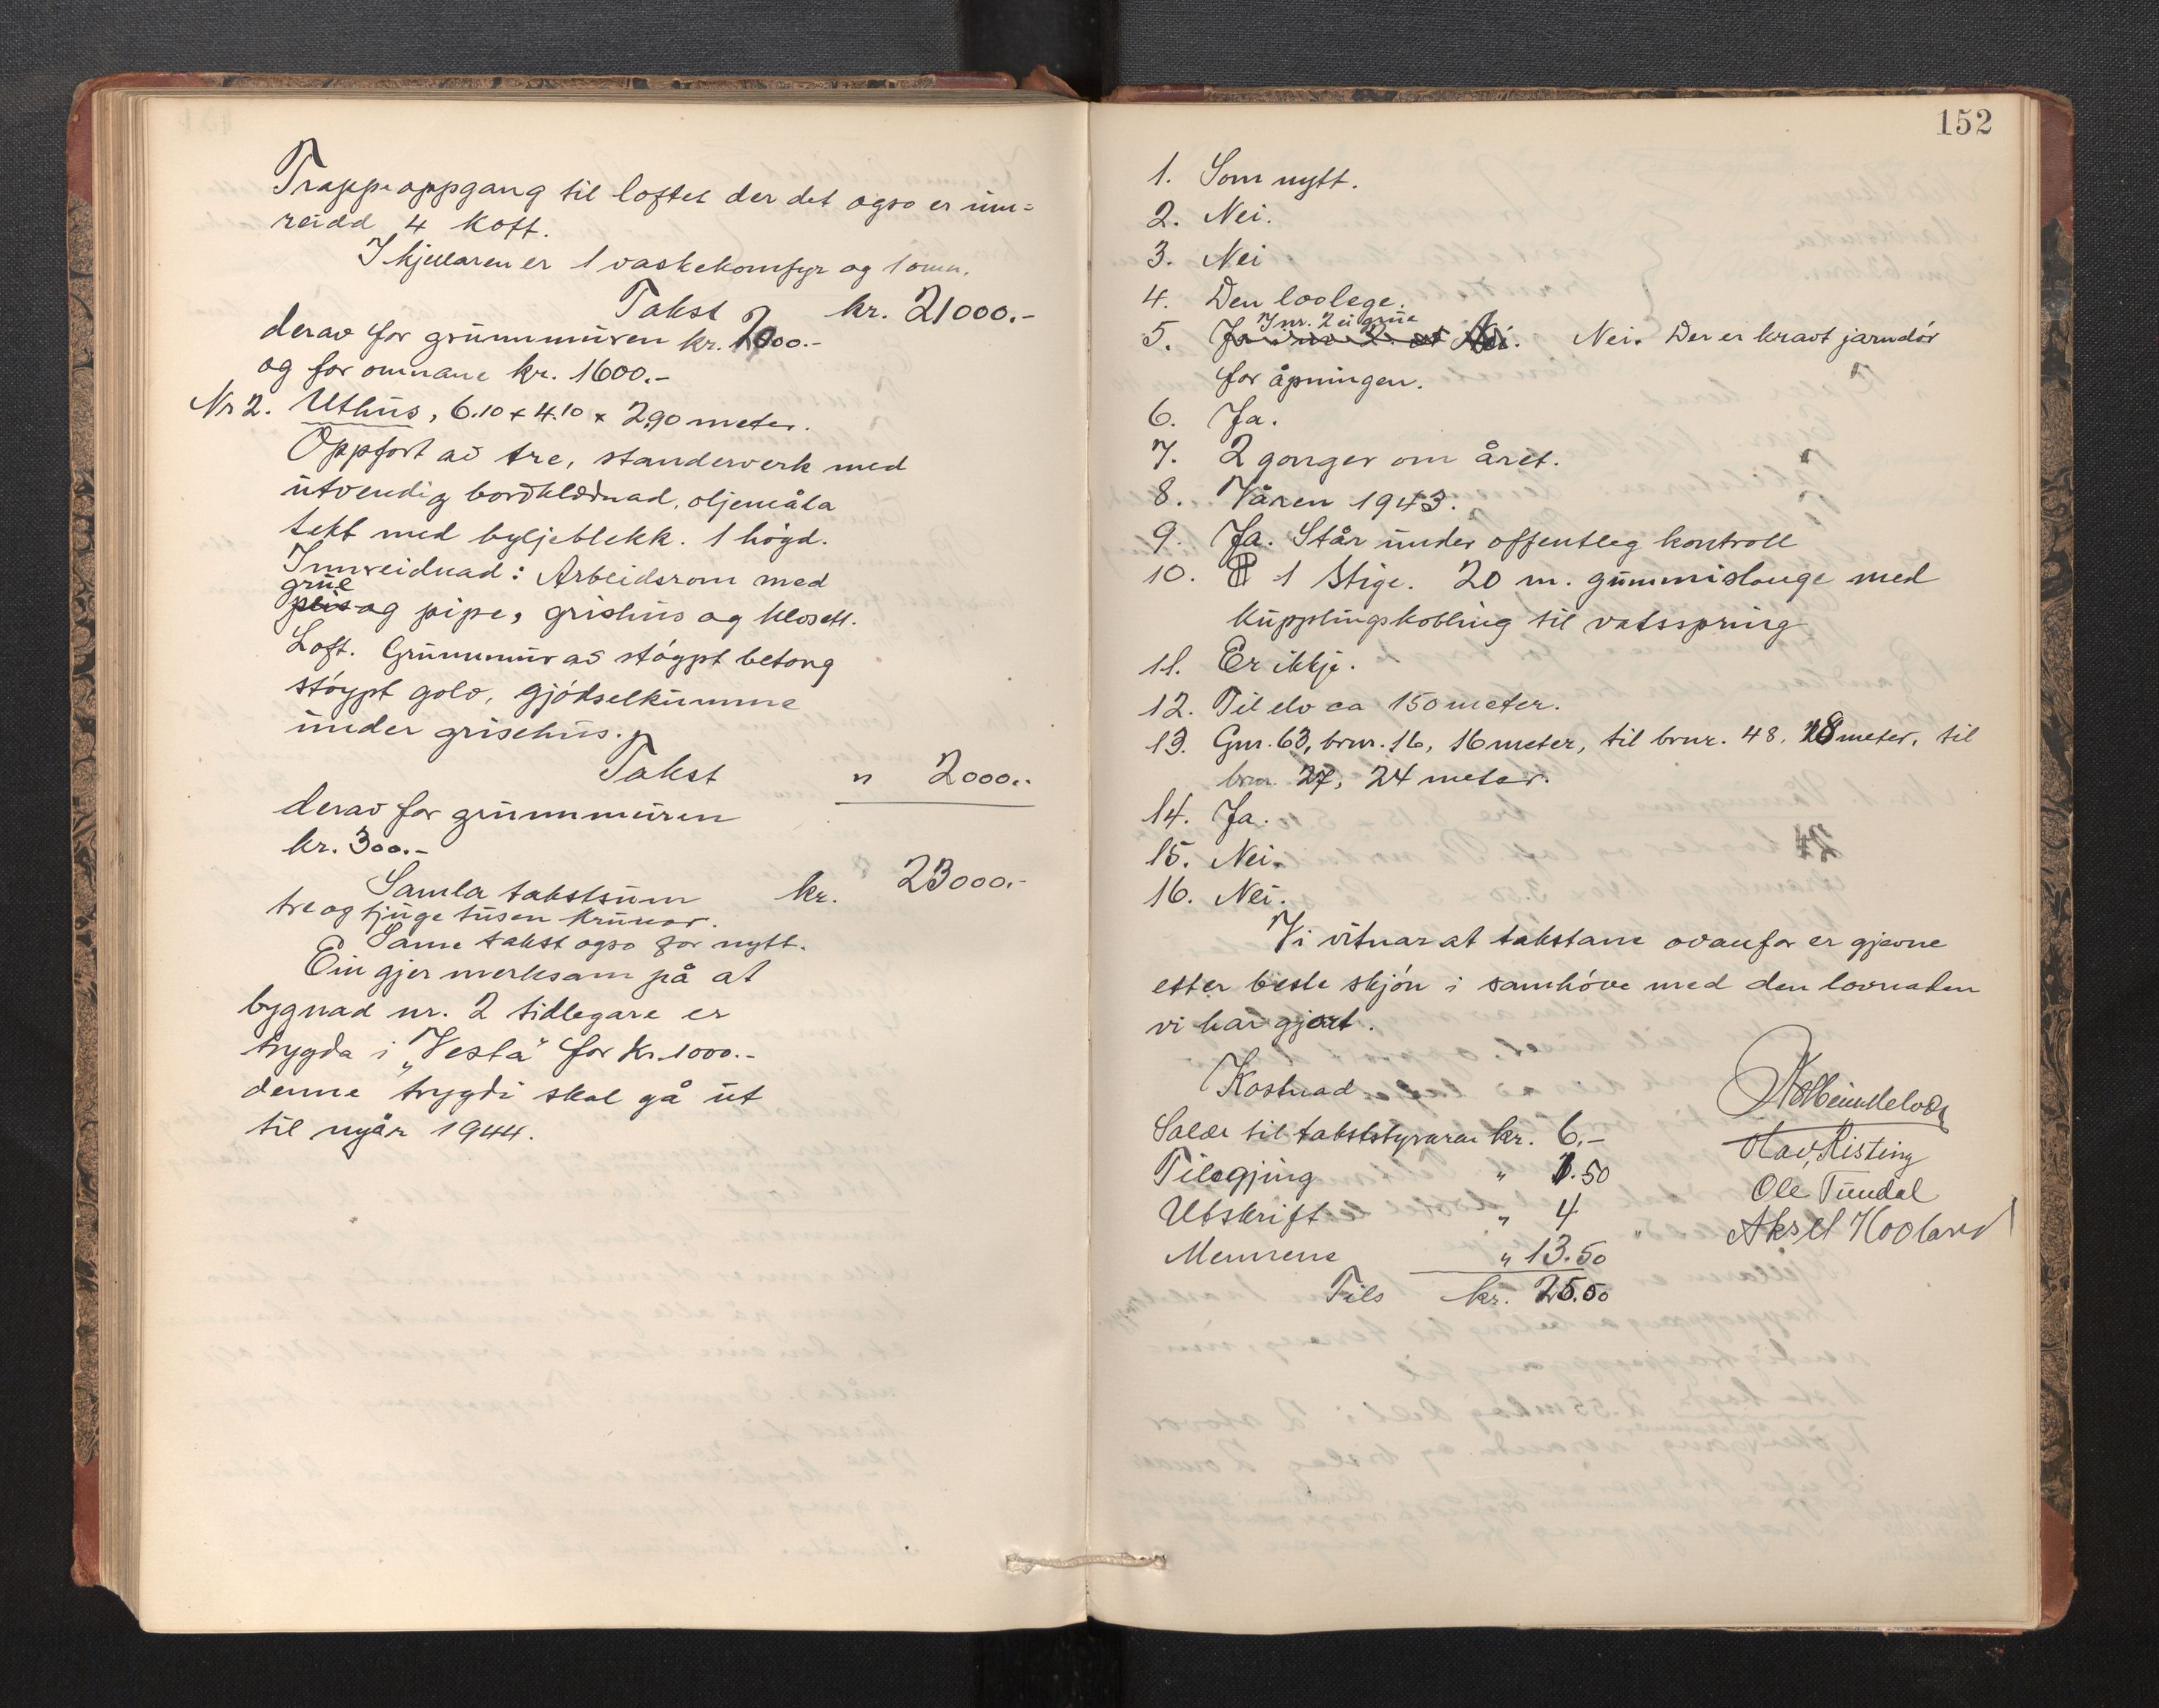 Trappeoppgang til loftet der det ogso er inn=
reidd 4 kott.
I kjellaren er 1 vaskekomfyr og 1 omn.
Takst kr. 21000.-
derav for grunnmuren kr. 2000.-
og for omnane kr. 1600.-
Nr 2. Uthus, 6.10 x 4.10 x 2,90 meter.
Oppført av tre, standerverk med
utvendig bordklædnad, oljemåla
tekt med byljeblekk. 1 høgd.
Innreidnad: Arbeidsrom med
grue
peis og pipe, grishus og klosett.
Loft. Grunnmur av støypt betong
støypt golv, gjødselkumme
under grisehus.
Takst " 2000.-
derav for grunnmuren
kr. 300.-
Samla takstsum kr. 23000.-
tre og tjuge tusen kruner.
Same takst ogso for nytt.
Ein gjer merksam på at
bygnad nr. 2 tidlegare er
trygda i „Vesta" for kr. 1000.-
denne trygdi skal gå ut
til nyår 1944.
152
1. Som nytt.
2. Nei.
3. Nei
4. Den lovlege.
I nr. 2 ei grue
5. Nei. Der er kravt jarndør
for åpningen.
6. Ja.
7. 2 gonger om året.
8. Våren 1943.
9. Ja. Står under offentleg kontroll
10. 1 Stige. 20 m. gummislange med
kupplingskobling til vatsspring
11. Er ikkje.
12. Til elv ca 150 meter.
13. Gnr. 63, brnr. 16, 16 meter, til brnr. 48, 18 meter, til
brnr. 27, 24 meter.
14. Ja.
15. Nei.
16. Nei.
Vi vitnar at takstane ovanfor er gjevne
etter beste skjøn i samhøve med den lovnaden
vi har gjort.
Kostnad
Salær til takststyraren kr. 6.-
Tilsegjing " 1.50
Utskrift " 4
Mennene " 13.50
Tils kr. 25.50
Olav Risting
Ole Tundal
Aksel Hovland